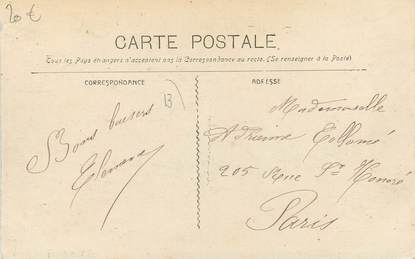 20 €
CARTE POSTALE
Tous les Pays étrangers n'acceptent pas la Correspondance au recto. (Se renseigner à la Poste)
CORRESPONDANCE
ADRESSE
13
Bons baisers
Mademoiselle
Adrienne
205 Rue St Honoré
Paris